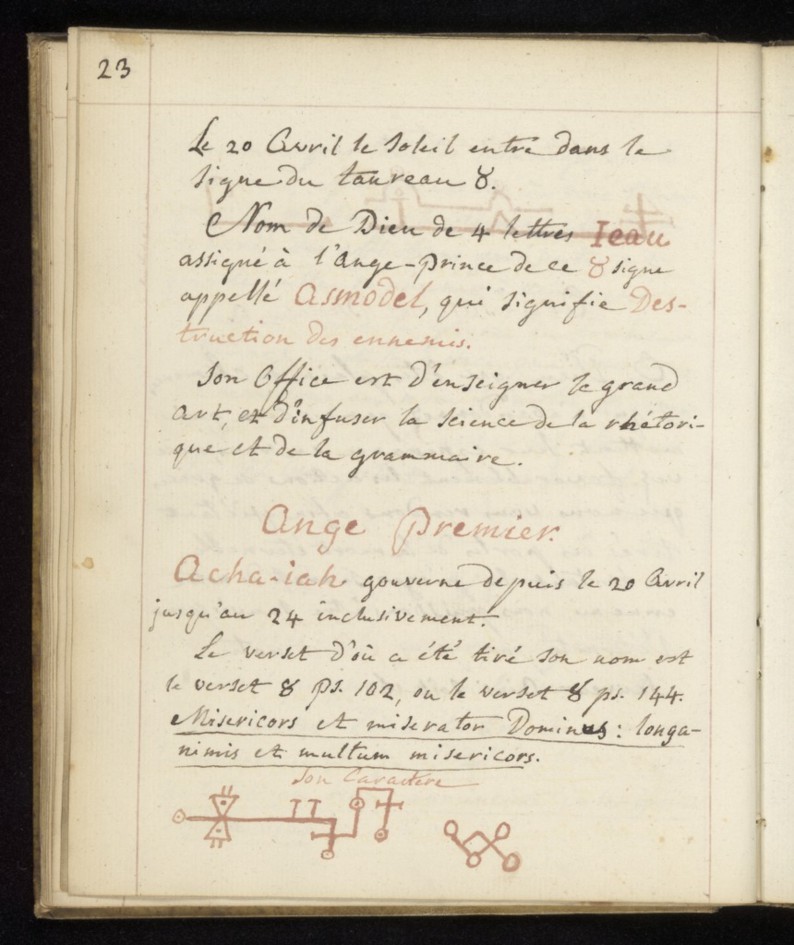 23
Le 20 Avril le Soleil entre dans le
signe du taureau ♉.
Nom de Dieu de 4 lettres Ieau
assigné à l'Ange-Prince de ce ♉ signe
appellé Asmodel, qui signifie Des-
truction des ennemis.
Son Office est d'enseigner le grand
art, et d'infuser la science de la rhétori-
que et de la grammaire.
Ange Premier.
Acha-iah gouverne depuis le 20 Avril
jusqu'au 24 inclusivement.
Le verset d'où a été tiré son nom est
le verset 8 ps. 102, ou le verset 8 ps. 144.
Misericors et miserator Dominus: longa-
nimis et multum misericors.
Son Caractere